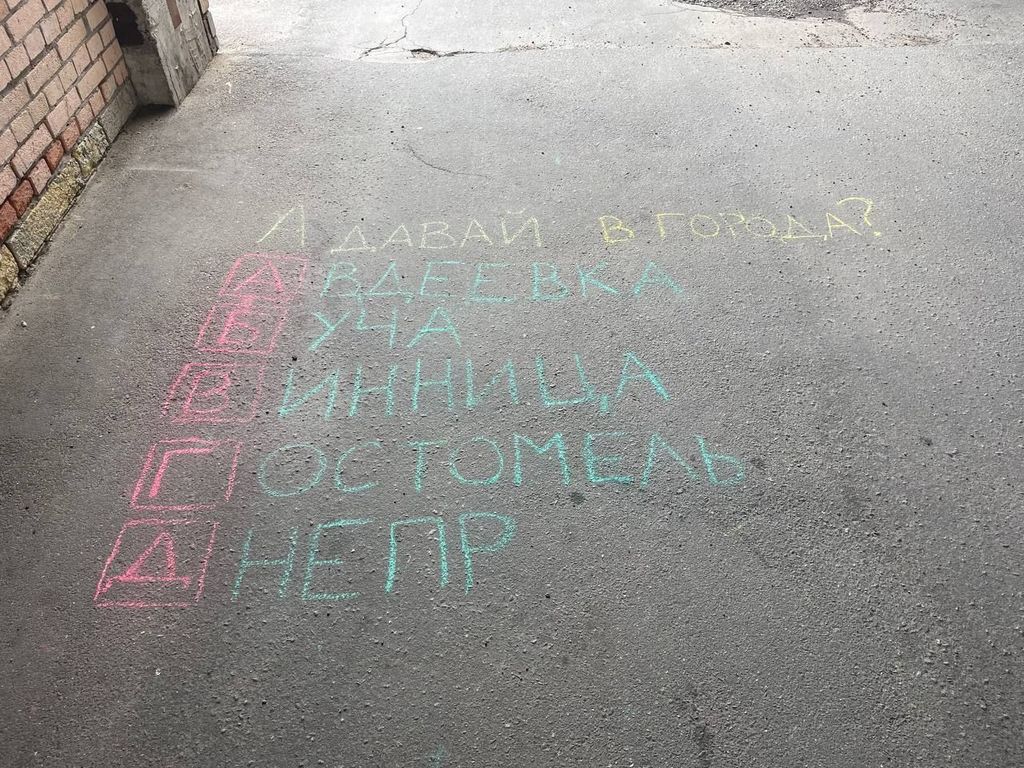 А ДАВАЙ В ГОРОДА?
АВДЕЕВКА
БУЧА
ВИННИЦА
ГОСТОМЕЛЬ
ДНЕПР